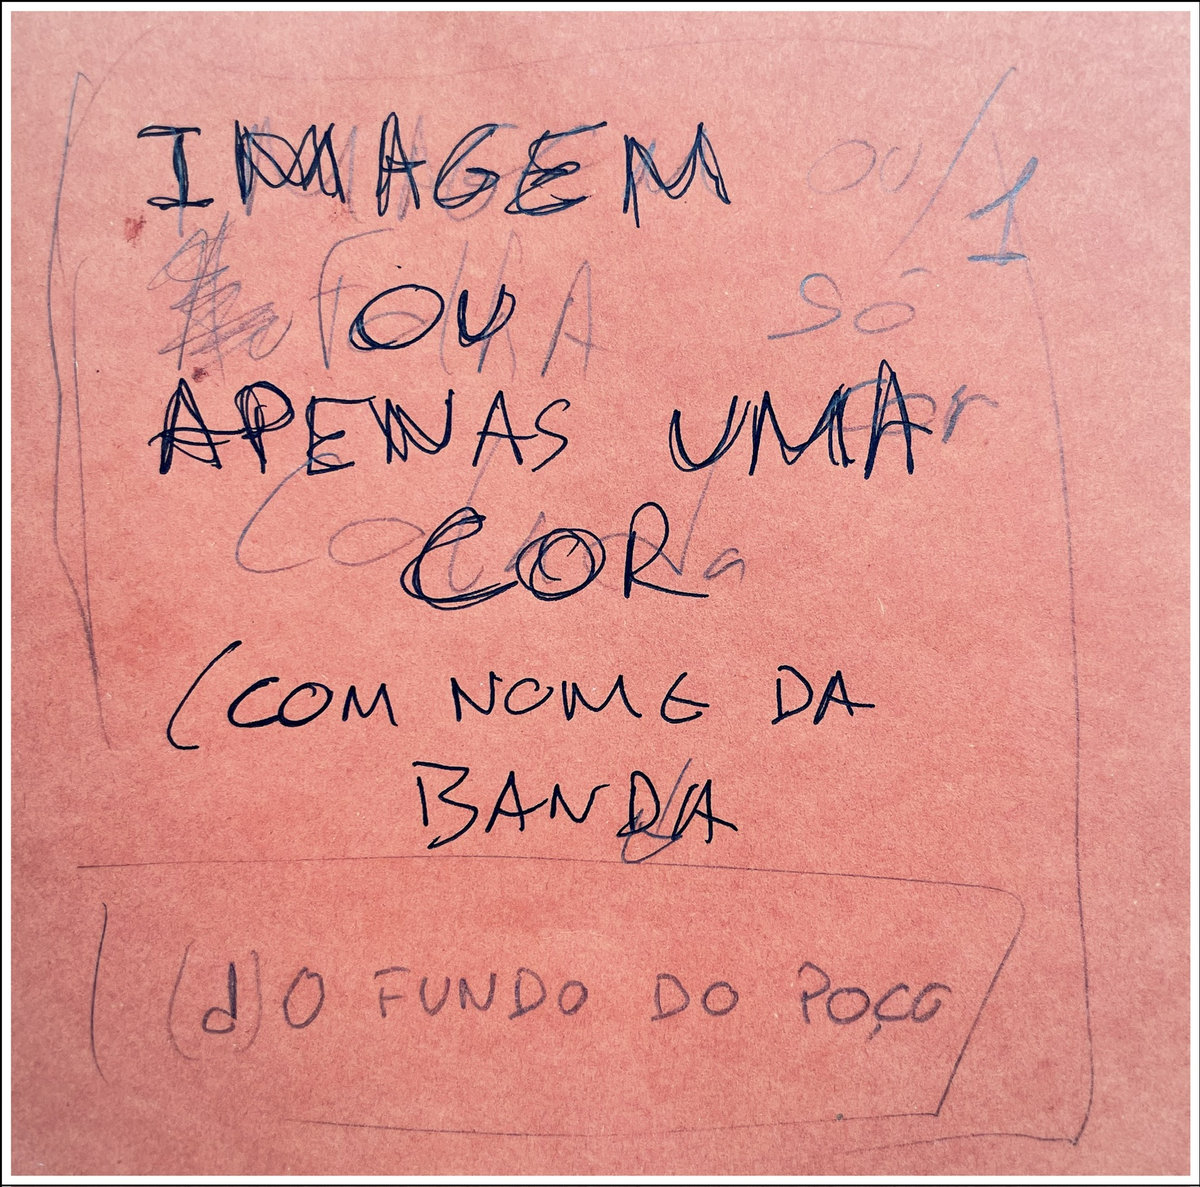 IMAGEM
OU/1
FOLHA SÓ
OU
APENAS UMA
cor
COR
(COM NOME DA
BANDA
(d)O FUNDO DO POÇO